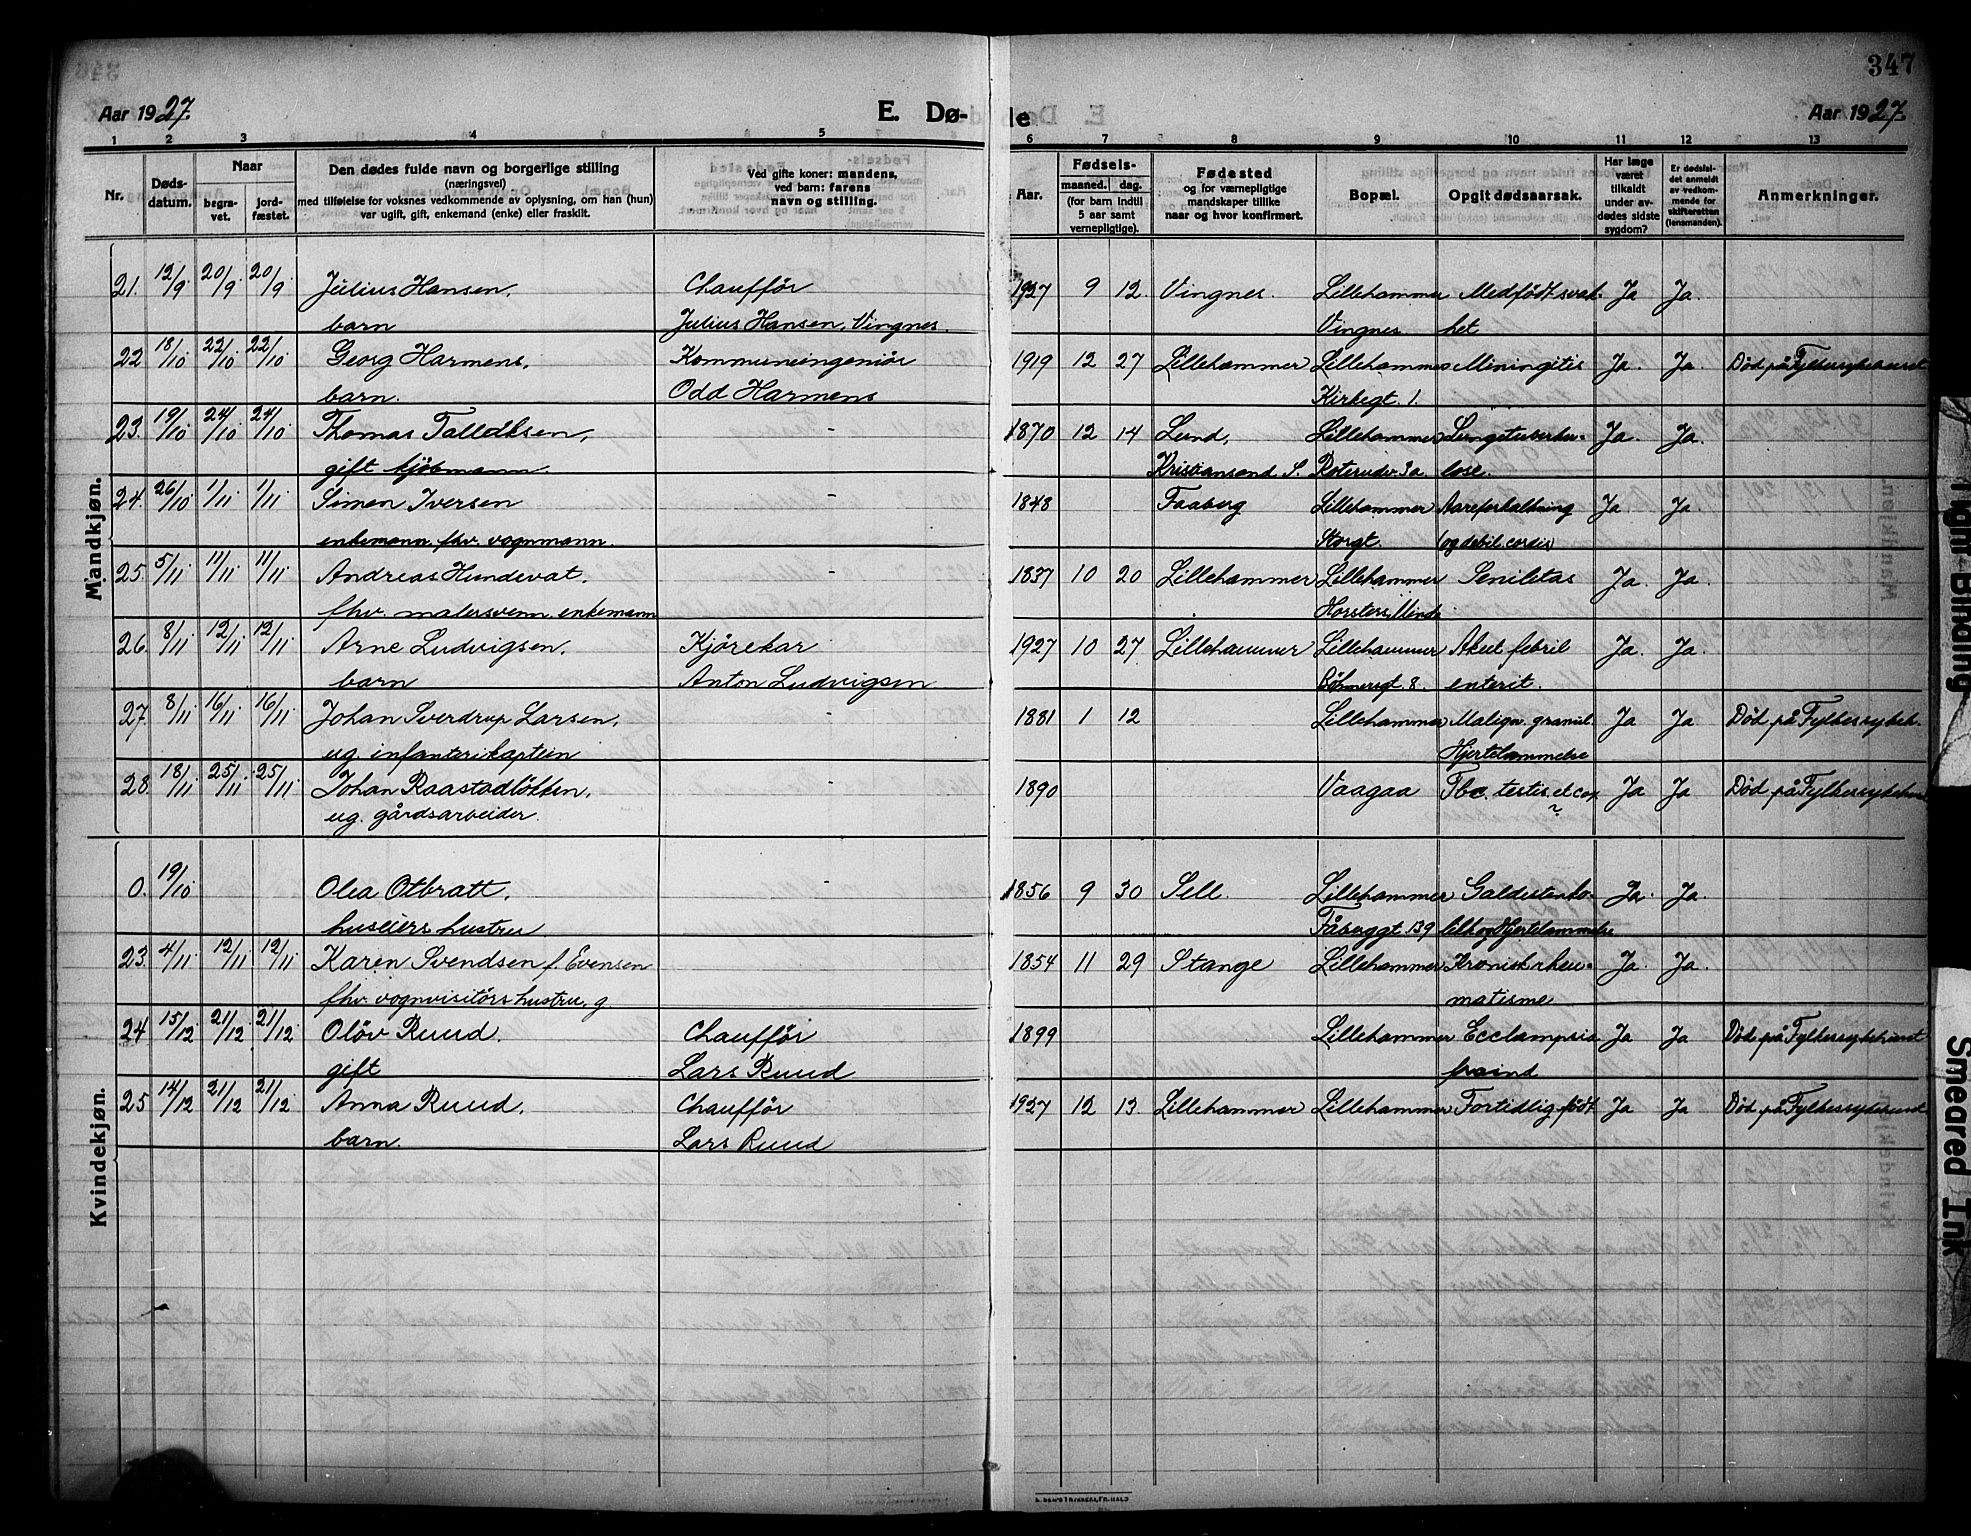 347
Aar 1927. E. Dø- de Aar 1927.
1 2 3 4 5 6 7 8 9 10 11 12 13
Nr. Døds-datum. Naar begra-vet. jord-fæstet. Den dødes fulde navn og borgerlige stilling (næringsvei) med tilføielse for voksnes vedkommende av oplysning, om han (hun) var ugift, gift, enkemand (enke) eller fraskilt. Ved gifte koner: mandens, ved barn: farens navn og stilling. Aar. Fødsels- maaned. dag. (for barn indtil 5 aar samt vernepligtige). Fødested og for værnepligtige mandskaper tillike naar og hvor konfirmert. Bopæl. Opgit dødsaarsak. Har læge været tilkaldt under av-dødes sidste sygdom? Er dødsfal-det anmeldt av vedkom-mende for skifteretten (lensmanden). Anmerkninger.
Mandkjøn.
21. 12/9 20/9 20/9 Julius Hansen, Chauffør 1927 9 12 Vingnes. Lillehammer Medfødt svak- Ja Ja.
barn Julius Hansen, Vingnes. Vingnes het
22 18/10 22/10 22/10 Georg Harmens, Kommuneingeniør 1919 12 27 Lillehammer Lillehammer Miningitis Ja. Ja. Død på Fylkessykehuset
barn. Odd Harmens Kirkegt. 1.
23. 19/10 24/10 24/10 Thomas Tallaksen, - 1870 12 14 Lund, Lillehammer Lungetuberku- Ja. Ja.
gift kjøbmann Kristiansand S. 3a. lose.
24. 26/10 1/11 1/11 Simen Iversen - 1848 Faaberg Lillehammer Aareforkalkning Ja. Ja.
enkemann, fhv. vognmann. Storgt. (og debil. cordis)
25. 5/11 11/11 11/11 Andreas Hundevat. - 1837 10 20 Lillehammer Lillehammer Seniletas Ja. Ja.
fhv. malersvenn, enkemann Minde
26. 8/11 12/11 12/11 Arne Ludvigsen, Kjørekar 1927 10 27 Lillehammer Lillehammer Akut febril Ja. Ja.
barn Anton Ludvigsen 8. enterit.
27. 8/11 16/11 16/11 Johan Sverdrup Larsen, - 1881 1 12 Lillehammer Malign. granul. Ja Ja Død på Fylkessykeh.
ug. infanterikaptein Hjertelammelse
28. 18/11 25/11 25/11 Johan Raastadløkken, - 1890 Vaagaa Tbc. testis et cox Ja Ja Død på Fylkessykehuset
ug. gårdsarbeider.
Kvindekjøn.
0. 19/10 Olea Otbratt, - 1856 9 30 Sell. Lillehammer Galdesten ko- Ja. Ja.
huseiers hustru Fåberggt 139 likk og Hjertelammelse
23. 4/11 12/11 12/11 Karen Svendsen f. Evensen 1854 11 29 Stange Lillehammer Kronisk rheu- Ja. Ja.
fhv. vognvisitørs hustru, g. matisme
24 15/12 21/12 21/12 Oløv Ruud. Chauffør 1899 Lillehammer Ecclampsia Ja Ja Død på Fylkessykehuset
gift Lars Ruud
25 14/12 21/12 21/12 Anna Ruud, Chauffør 1927 12 13 Lillehammer Lillehammer Fortidlig født Ja Ja Død på Fylkessykehuset
barn. Lars Ruud
Tight Binding
Smeared Ink